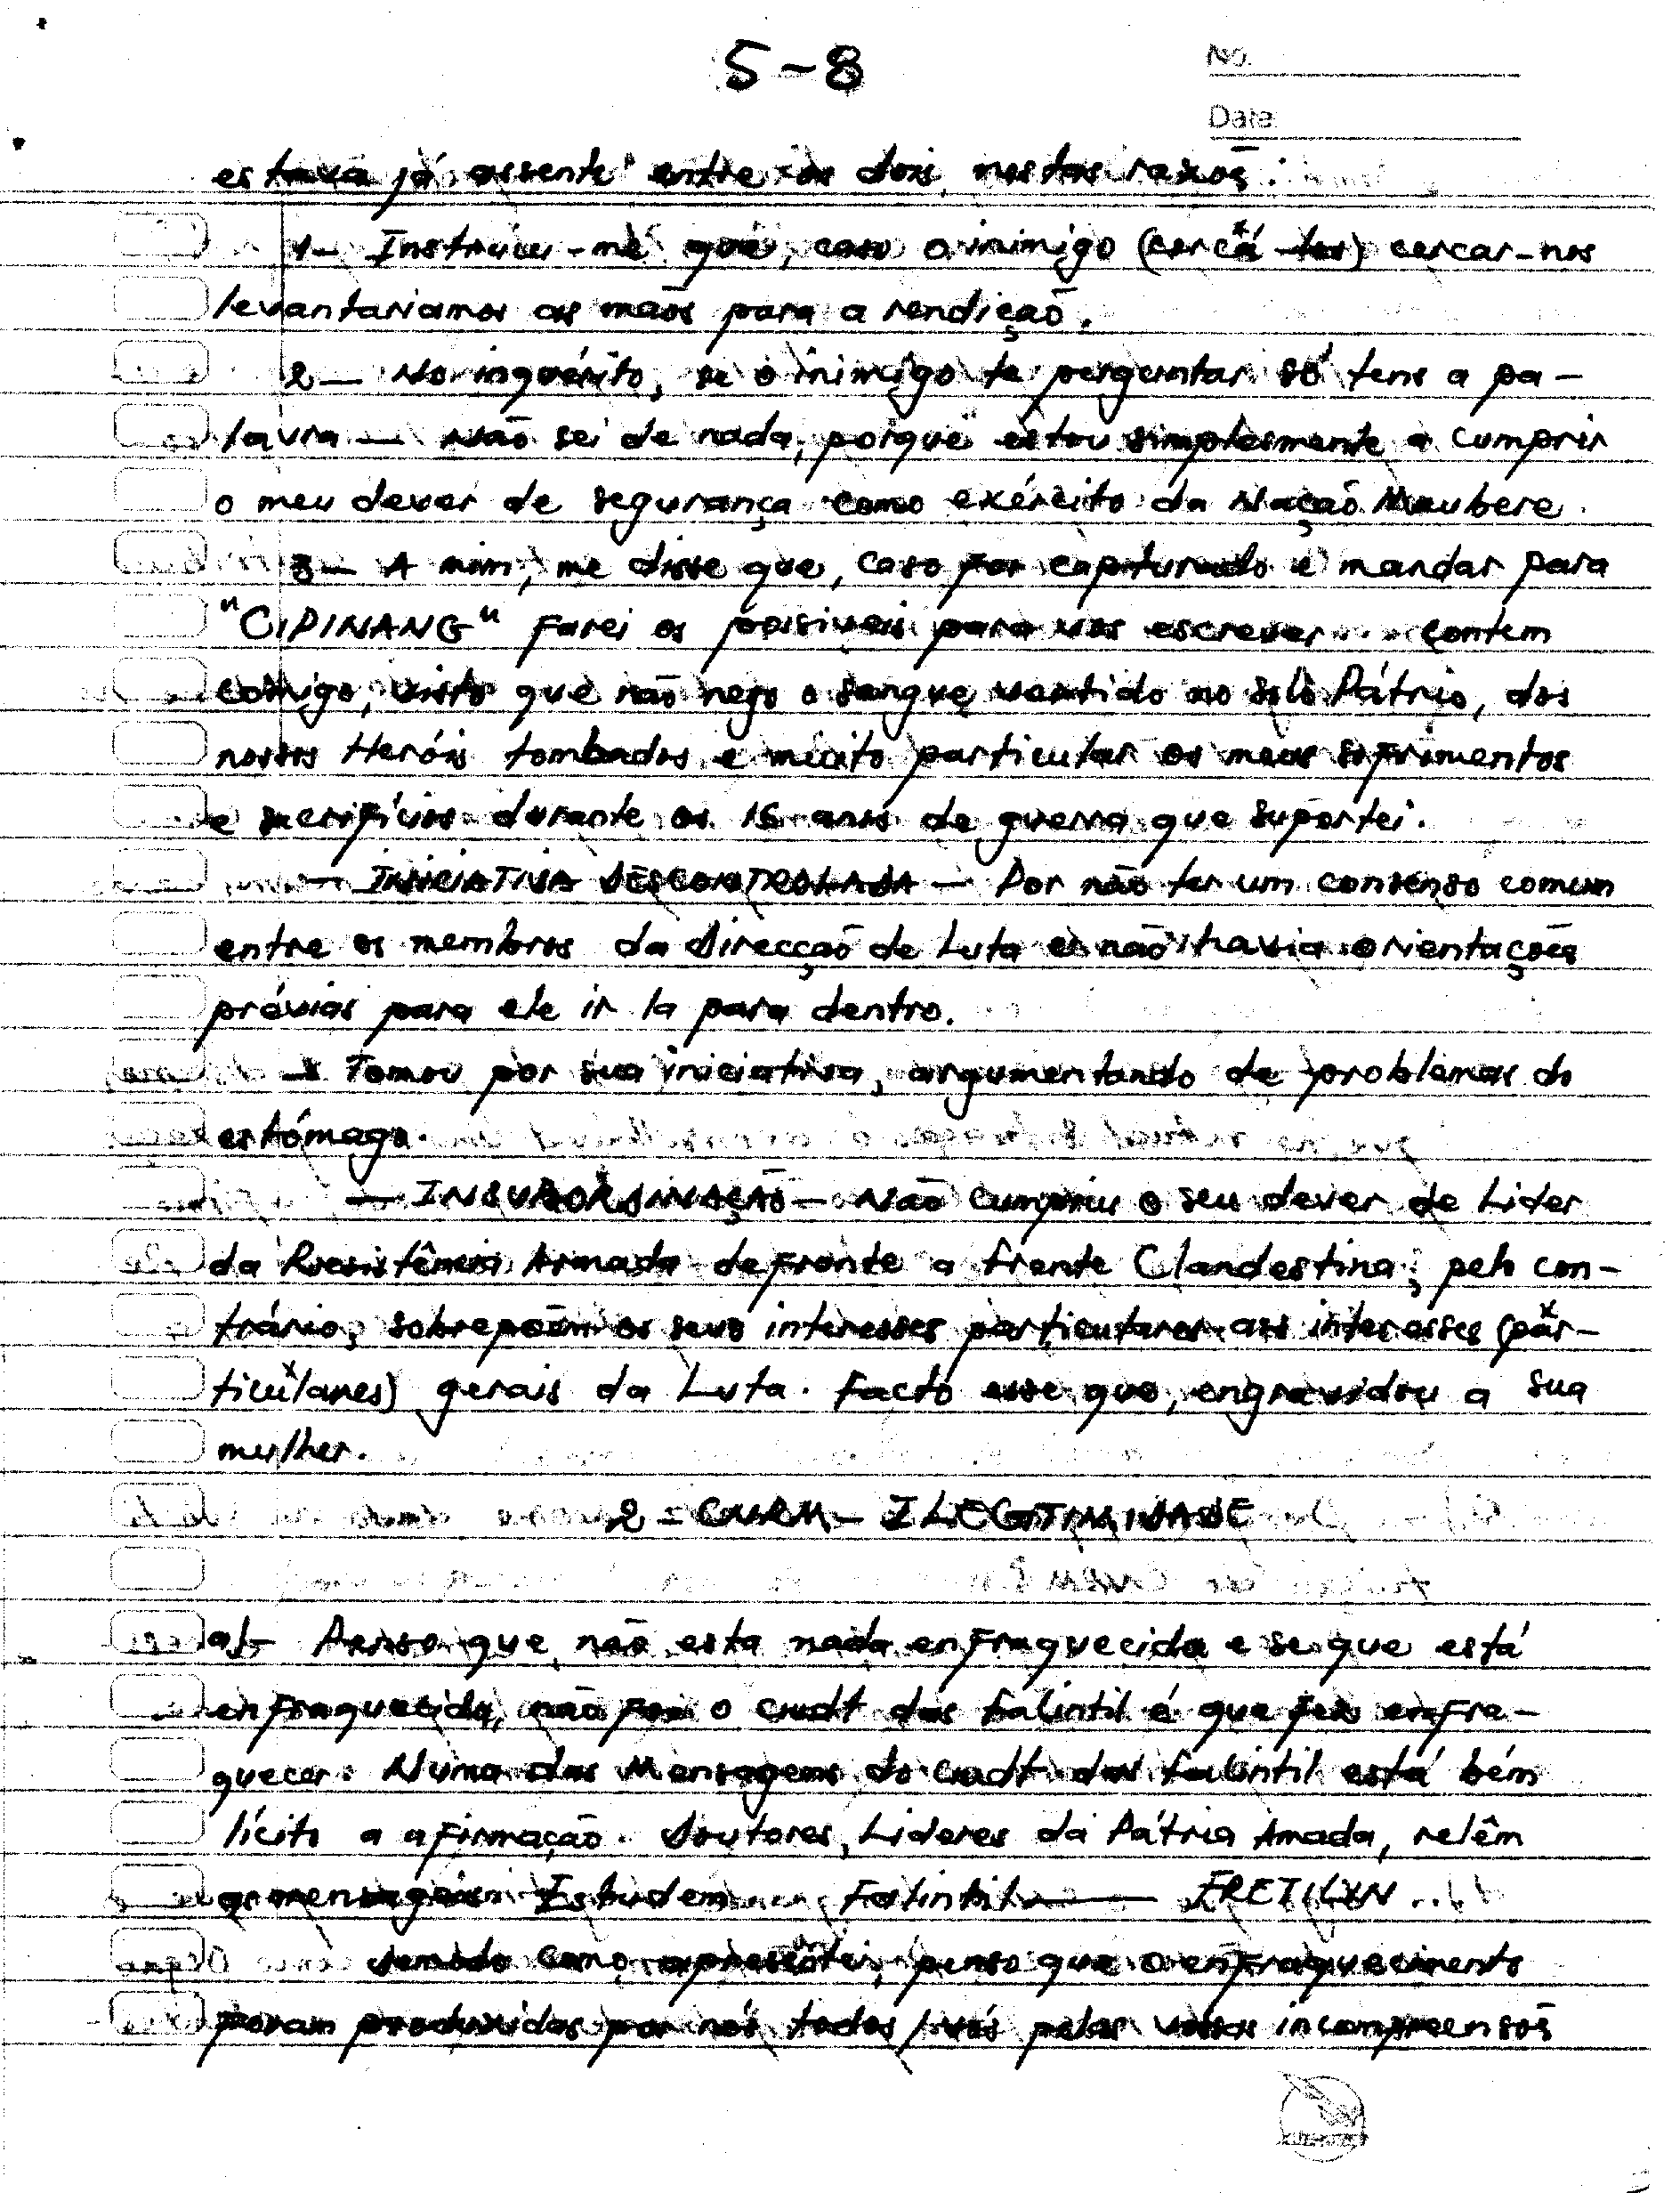 5-8
No.
Date
estava já assente entre os dois, nestas razoẽs:
1- Instruiu-me que, caso o inimigo (cercá-los) cercar-nos
levantariamos as maõs para a rendiçaõ.
2- No inquérito, se o inimigo te perguntar só tens a pa-
lavra — Naõ sei de nada, porque estou simplesmente a cumprir
o meu dever de segurança como exército da Naçaõ Maubere.
3- A mim, me disse que, caso for capturado e mandar para
"CIPINANG" farei os possiveis para vos escrever contem
comigo, visto que naõ nego o sangue vertido no solo Pátrio, dos
nossos Heróis tombados e muito particular os meus sofrimentos
e sacrifícios durante os 16 anos de guerra que suportei.
— INICIATIVA DESCONTROLADA — Por naõ ter um consenso comum
entre os membros da Direcçaõ de Luta e naõ havia orientaçoẽs
prévias para ele ir la para dentro.
- Tomou por sua iniciativa, argumentando de problemas do
estómago.
— INSUBORDINAÇAÕ — Naõ cumpriu o seu dever de Lider
da Resistência Armada defronte a frente Clandestina; pelo con-
trário, sobrepoẽm os seus interesses particulares aos interesses (par-
ticulares) gerais da Luta. Facto esse que, engravidou a sua
mulher.
2 - CNRM - ILEGITIMIDADE
a)- Penso que naõ esta nada enfraquecida e se que está
enfraquecida, naõ foi o Cmdt das Falintil é que fez enfra-
quecer. Numa das Mensagens do Cmdt das Falintil está bém
lícito a afirmaçaõ. Doutores, Lideres da Pátria Amada, relêm
as mensagens. Estudem Falintil — FRETILIN ...
Demodo como apresentei, penso que o enfraquecimento
foram produzidas por nós todos / vós pelas vossas incompreensoẽs